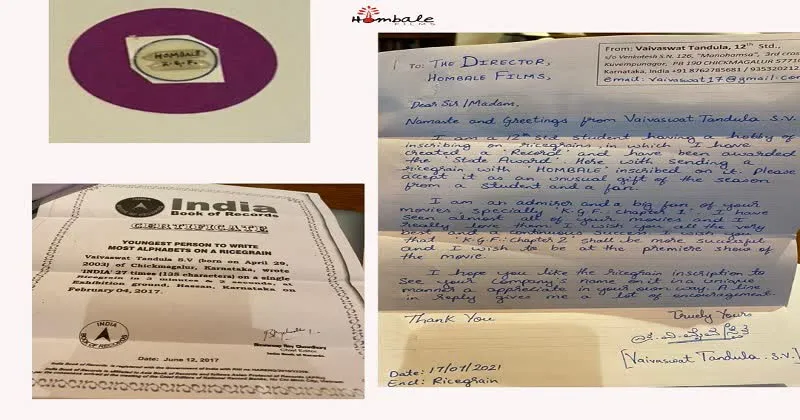 HOMBALE
K.G.F.
Hombale
FILMS
India
Book of Records
CERTIFICATE
YOUNGEST PERSON TO WRITE
MOST ALPHABETS ON A RICEGRAIN
Vaivaswat Tandula S.V (born on April 29,
2003) of Chickmagalur, Karnataka, wrote
'INDIA' 27 times characters) on a single
ricegrain in 3 minutes & 2 seconds, at
Exhibition ground, Hassan, Karnataka on
February 04, 2017.
INDIA
BOOK OF RECORDS
Biswaroop Roy Chowdhury
Chief Editor
India Book of Records
Date: June 12, 2017
India Book of Records is registered with the Government of India with RNI no
From: Vaivaswat Tandula, 12th Std.,
s/o Venkatesh S.N. 126, "Manohamsa", 3rd cross
Kuvempunagar, PB 190 CHICKMAGALUR 57710
Karnataka, India +91 8762785681 / 935320212
email: vaivaswat17@gmail.com
TO: THE DIRECTOR,
HOMBALE FILMS,
Dear Sir/Madam,
Namaste and Greetings from Vaivaswat Tandula S.V.
I am a 12th Std student having a hobby of
inscribing on ricegrains in which I have
created a 'Record' and have been awarded
the 'State Award'. Here with sending a
ricegrain with 'HOMBALE' inscribed on it. Please
accept it as an unusual gift of the season
from a student and a fan.
I am an admirer and a big fan of your
movies specially 'K.G.F. Chapter 1'. I have
seen almost all of your movies and I
really love them. I wish you all the very
best and a continuous success. I wish you
that 'K.G.F. Chapter 2' shall be more sucessful
and I wish to be at the premiere show of
the movie.
I hope you like the ricegrain inscription to
see your company's name on it in a unique
manner & appreciate in your own way. A line
in reply gives me a lot of encouragement.
Thank You
Truely Yours
[Vaivaswat Tandula S.V.]
Date: 17/07/2021
Encl: Ricegrain